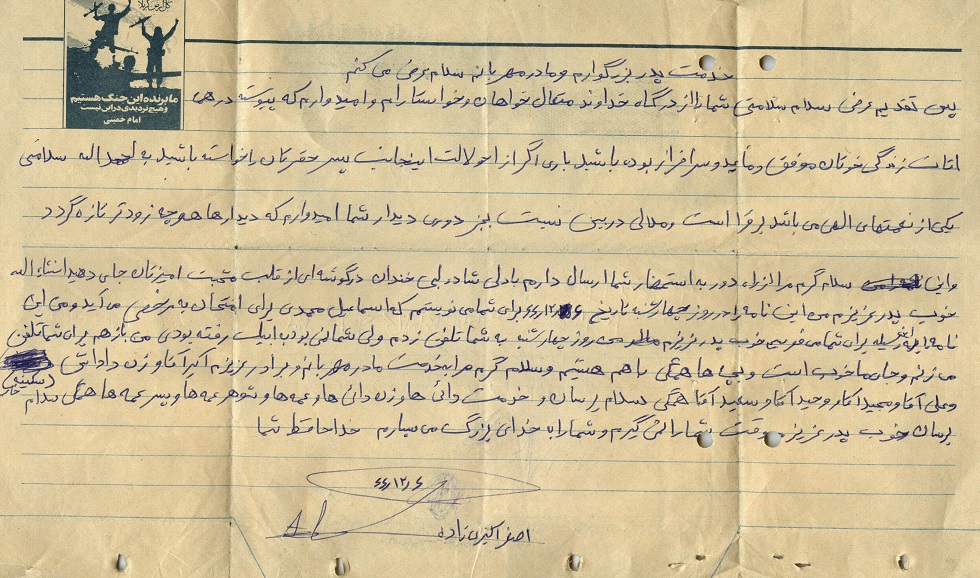 کل ارض کربلا
ما برنده این جنگ هستیم
و هیچ تردیدی در این نیست
امام خمینی
خدمت پدر بزرگوارم و مادر مهربانم سلام عرض می کنم
پس تقدیم عرض سلام سلامتی شما را از درگاه خداوند متعال خواهان و خواستارام و امیدوارم که پیوسته در همی
اقات زندگی خودتان موفق و سرافراز بوده باشید باری اگر از احولات اینجانب پسر حقرتان باخواسته باشید به لحمد اله سلامتی
یکی از نعمتهای الهی می باشد برقرا است و ملالی در بین نیست بجز دوری دیدار شما امیدوارم که دیدارها هرچه زودتر تازه گردد
و این سلام گرم مرا از راه دور به استحضار شما ارسال دارم بادلی شاد و لبی خندان در گوشه ای از قلب محبت امیزتان جای دهید انشاء اله
خوب پدر عزیزم من این نامه را در روز چهارشنبه تاریخ ۶ر۱۲ر۶۴ برای شما می نویسم که اسماعیل مجدی برای امتحان به مرخصی می آید و من این
نامه برای شما می فرستم خوب پدر عزیزم من روز چهارشنبه به شما تلفن زدم ولی شما نبودی به ایبک رفته بودی من باز هم برای شما تلفن
می زنم و حال ما خوب است و بچه ها همگی باهم هستیم و سلام گرم مرا به خدمت مادر مهربانم و برادر عزیزم اکبر آقا و زن داداش
(سکینه)
و علی آقا و مجید آقا و وحید آقا و سعید آقا همگی سلام برسان و خدمت دائی ها و زن دائی ها و عمه ها و شوهر عمه ها و پسر عمه ها همگی سلام
برسان خوب پدر عزیزم وقت شما را نمی گیرم و شما را به خدای بزرگ می سپارم خداحافظ شما
۶ر۱۲ر۶۴
اصغر اکبری زاده